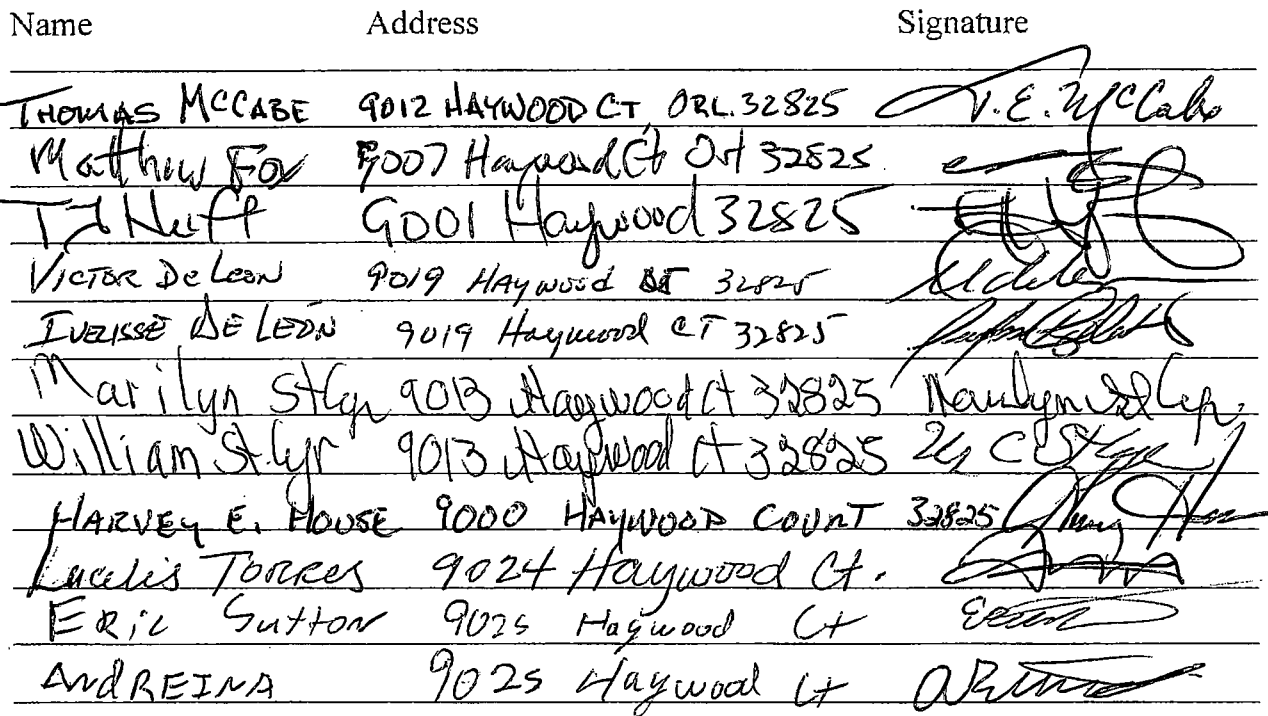 Name Address Signature
THOMAS MCCABE 9012 HAYWOOD CT, ORL. 32825 T.E. McCabe
Matthew Fox 9007 Haywood Ct Orl 32825
TJ Neff 9001 Haywood 32825
VICTOR De LEON 9019 HAYWOOD CT 32825
IVELISSE DE LEÓN 9019 Haywood CT 32825
Marilyn St Cyr 9013 Haywood Ct 32825 Marilyn St Cyr.
William St. Cyr 9013 Haywood Ct 32825
HARVEY E. HOUSE 9000 HAYWOOD COURT 32825
Lucelis TORRES 9024 Haywood Ct.
ERic Sutton 9025 Haywood Ct
ANdREINA 9025 Haywood Ct